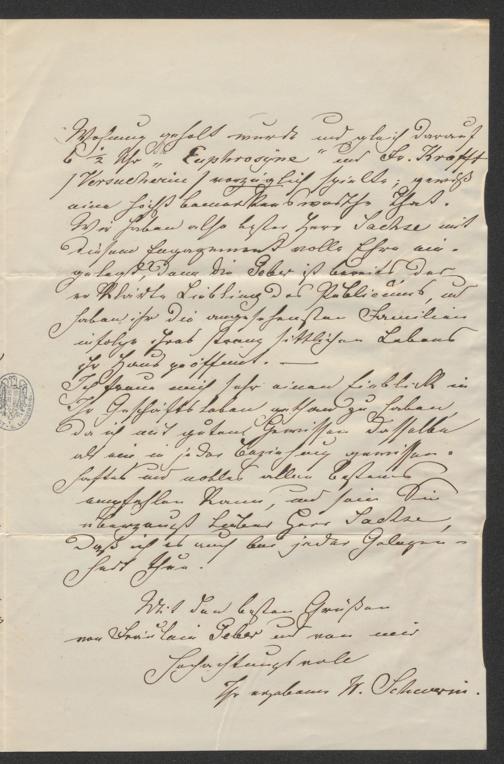 Wohnung geholt wurde und gleich darauf
6 ½ Uhr „Euphrosyne" und Fr. Krafft
/Versucherin/ vorzüglich spielte; gewiß
eine höchst bemerkenswerthe That.
Wir haben also bester Herr Sachse mit
diesem Engagement volle Ehre ein-
gelegt, denn die Geber ist bereits der
erklärte Liebling des Publicums, und
haben ihr die angesehensten Familien
infolge ihres streng sittlichen Lebens
ihr Haus geöffnet. —
Ich freue mich sehr einen Einblick in
Ihr Geschäftsleben gethan zu haben,
da ich mit gutem Gewissen dasselbe
als ein in jeder Beziehung gewissen-
haftes und nobles allen bestens
empfehlen kann, und sein Sie
überzeugt lieber Herr Sachse,
daß ich es auch bei jeder Gelegen-
heit thue.
Mit den besten Grüßen
von Fräulein Geber und von mir
Hochachtungsvoll
Ihr ergebener W. Schwerin.